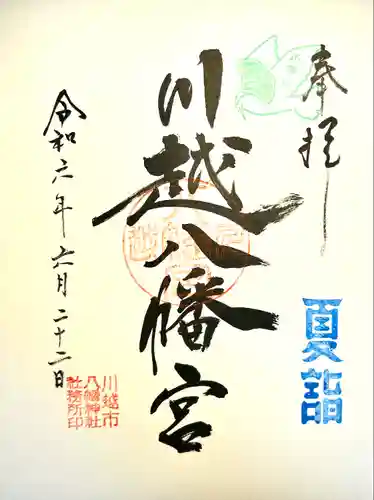 奉拝
夏詣
川越八幡宮
令和六年六月二十二日
川越市
八幡神社
社務所印